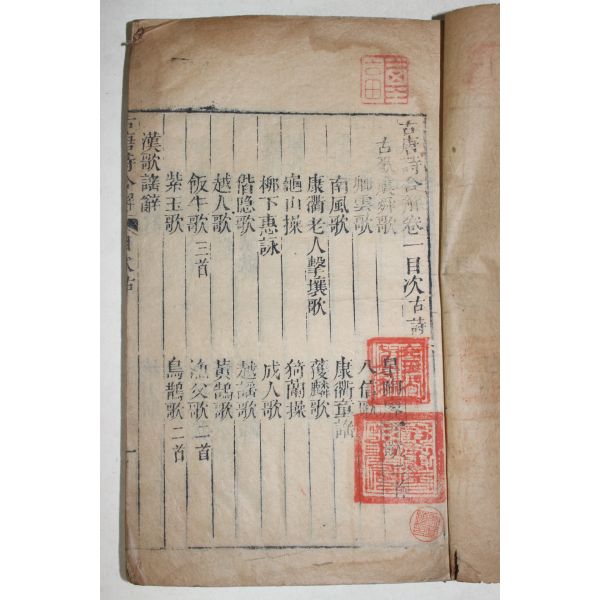 古唐詩合解卷一目次古詩
古歌
卿雲歌 八伯歌
南風歌 康衢童謠
康衢老人擊壤歌 獲麟歌
龜山操 猗蘭操
柳下惠詠 成人歌
偕隱歌 越謠歌
越人歌 黃鵠歌
飯牛歌 三首 漁父歌 二首
紫玉歌 烏鵲歌 二首
漢歌謠辭
古唐詩合解 目次古 一